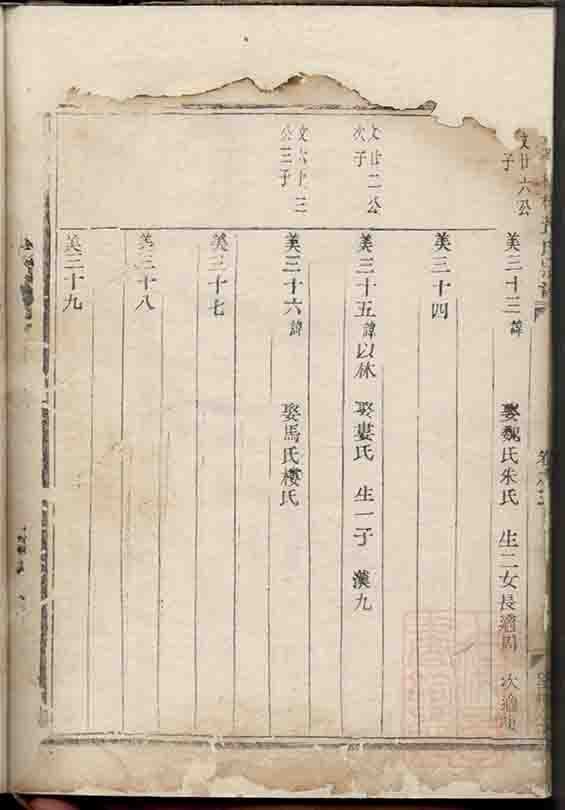 文廿六公
次子
美三十三 諱 娶魏氏朱氏 生二女長適 次適
美三十四
文廿二公
次子
美三十五 諱以林 娶婁氏 生一子 漢九
文六十三
公三子
美三十六 諱 娶馬氏樓氏
美三十七
美三十八
美三十九